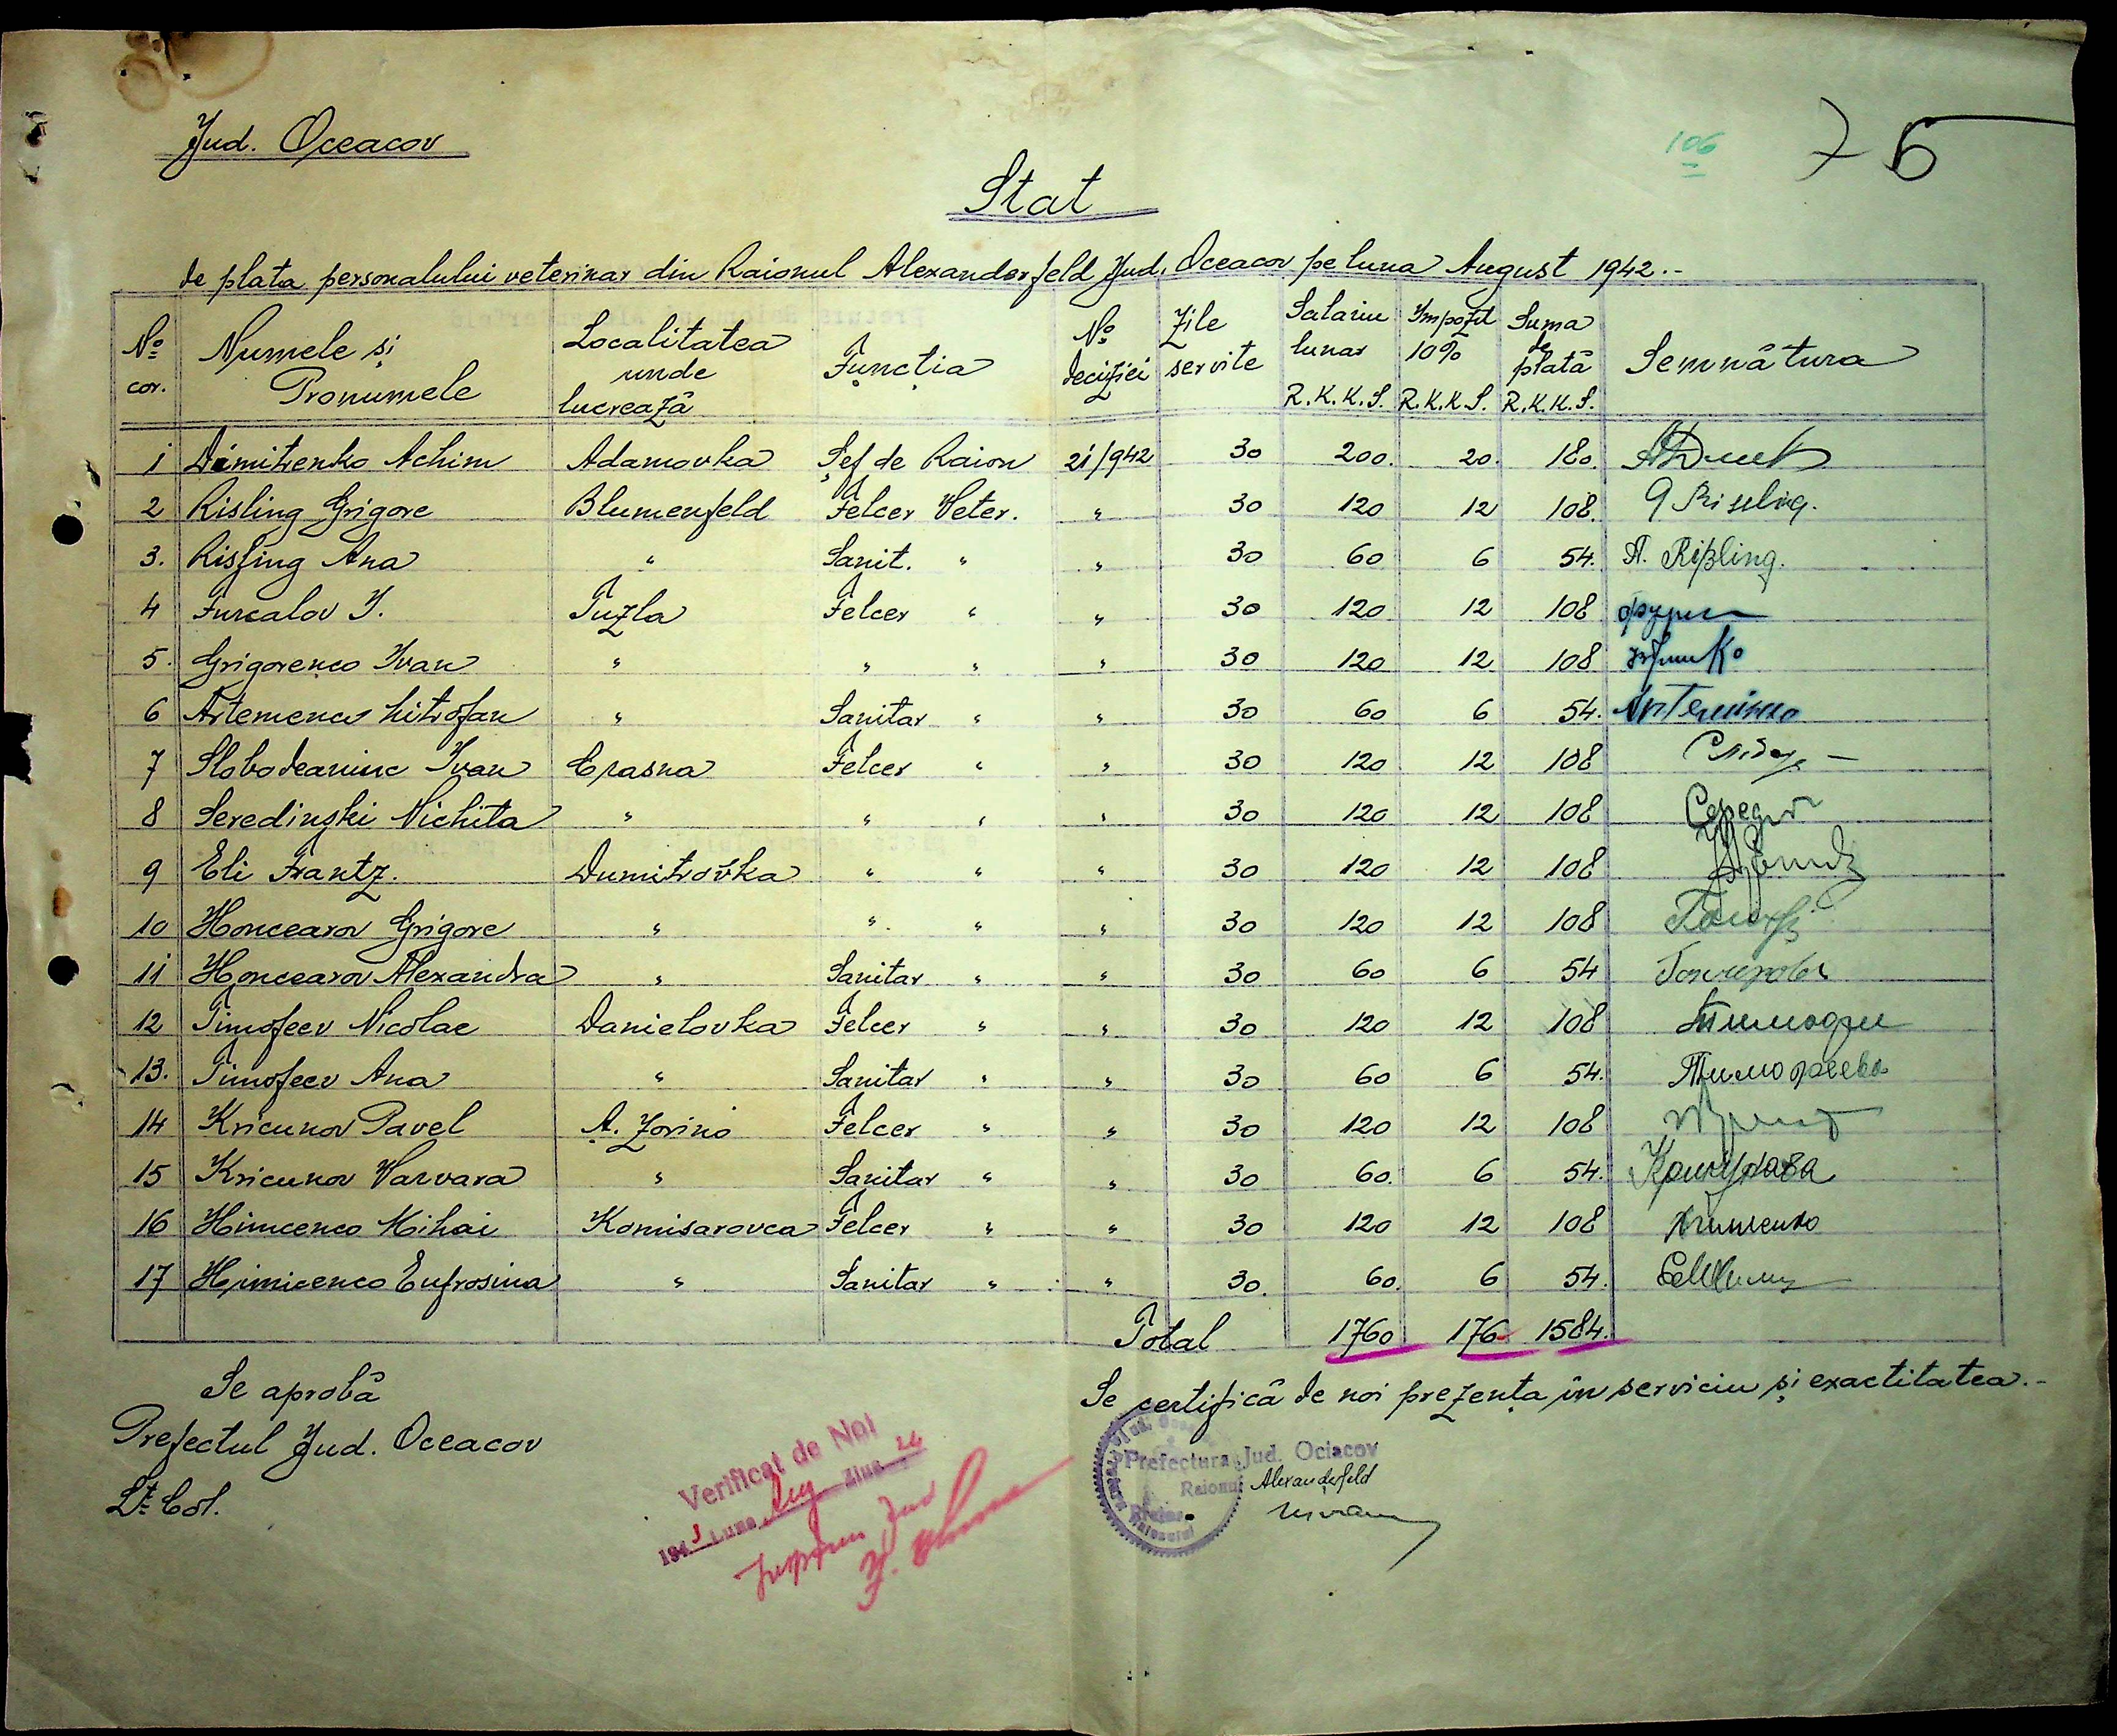 Jud. Oceacov
106
76
Stat
de plata personalului veterinar din Raionul Alexanderfeld Jud. Oceacov pe luna August 1942.-
No cor. Numele și Pronumele Localitatea unde lucrează Funcția No deciziei Zile servite Salariu lunar R.K.K.S. Impozit 10% R.K.K.S. Suma de plată R.K.K.S. Semnătura
1 Dimitrenko Achim Adamovka Șef de Raion 21/942 30 200. 20. 180.
2 Risling Grigore Blumenfeld Felcer Veter. " 30 120 12 108. G Rissling.
3. Risfing Ana " Sanit. " " 30 60 6 54. A. Rißling.
4 Furcalov I. Tuzla Felcer " " 30 120 12 108
5. Grigorenco Ivan " " " " 30 120 12 108
6 Artemenco Mitrofan " Sanitar " " 30 60 6 54.
7 Slobodeaniuc Ivan Crasna Felcer " " 30 120 12 108
8 Seredinski Nichita " " " " 30 120 12 108
9 Eli Frantz. Dumitrovka " " " 30 120 12 108
10 Honcearov Grigore " " " " 30 120 12 108
11 Honcearov Alexandra " Sanitar " " 30 60 6 54
12 Timofeev Nicolae Danielovka Felcer " " 30 120 12 108
13. Timofeev Ana " Sanitar " " 30 60 6 54. Тимофеева
14 Kricunov Pavel A. Zorino Felcer " " 30 120 12 108
15 Kricunov Varvara " Sanitar " " 30 60. 6 54.
16 Himcenco Mihai Komisarovca Felcer " " 30 120 12 108
17 Himicenco Eufrosina " Sanitar " " 30. 60. 6 54.
Total 1760 176 1584.
Se aprobă
Prefectul Jud. Oceacov
Lt. Col.
Se certifică de noi prezența în serviciu și exactitatea.-
Verificat de Noi
1943 Luna Aug Ziua 24
Prefectura Jud. Ociacov
Raionul Alexanderfeld